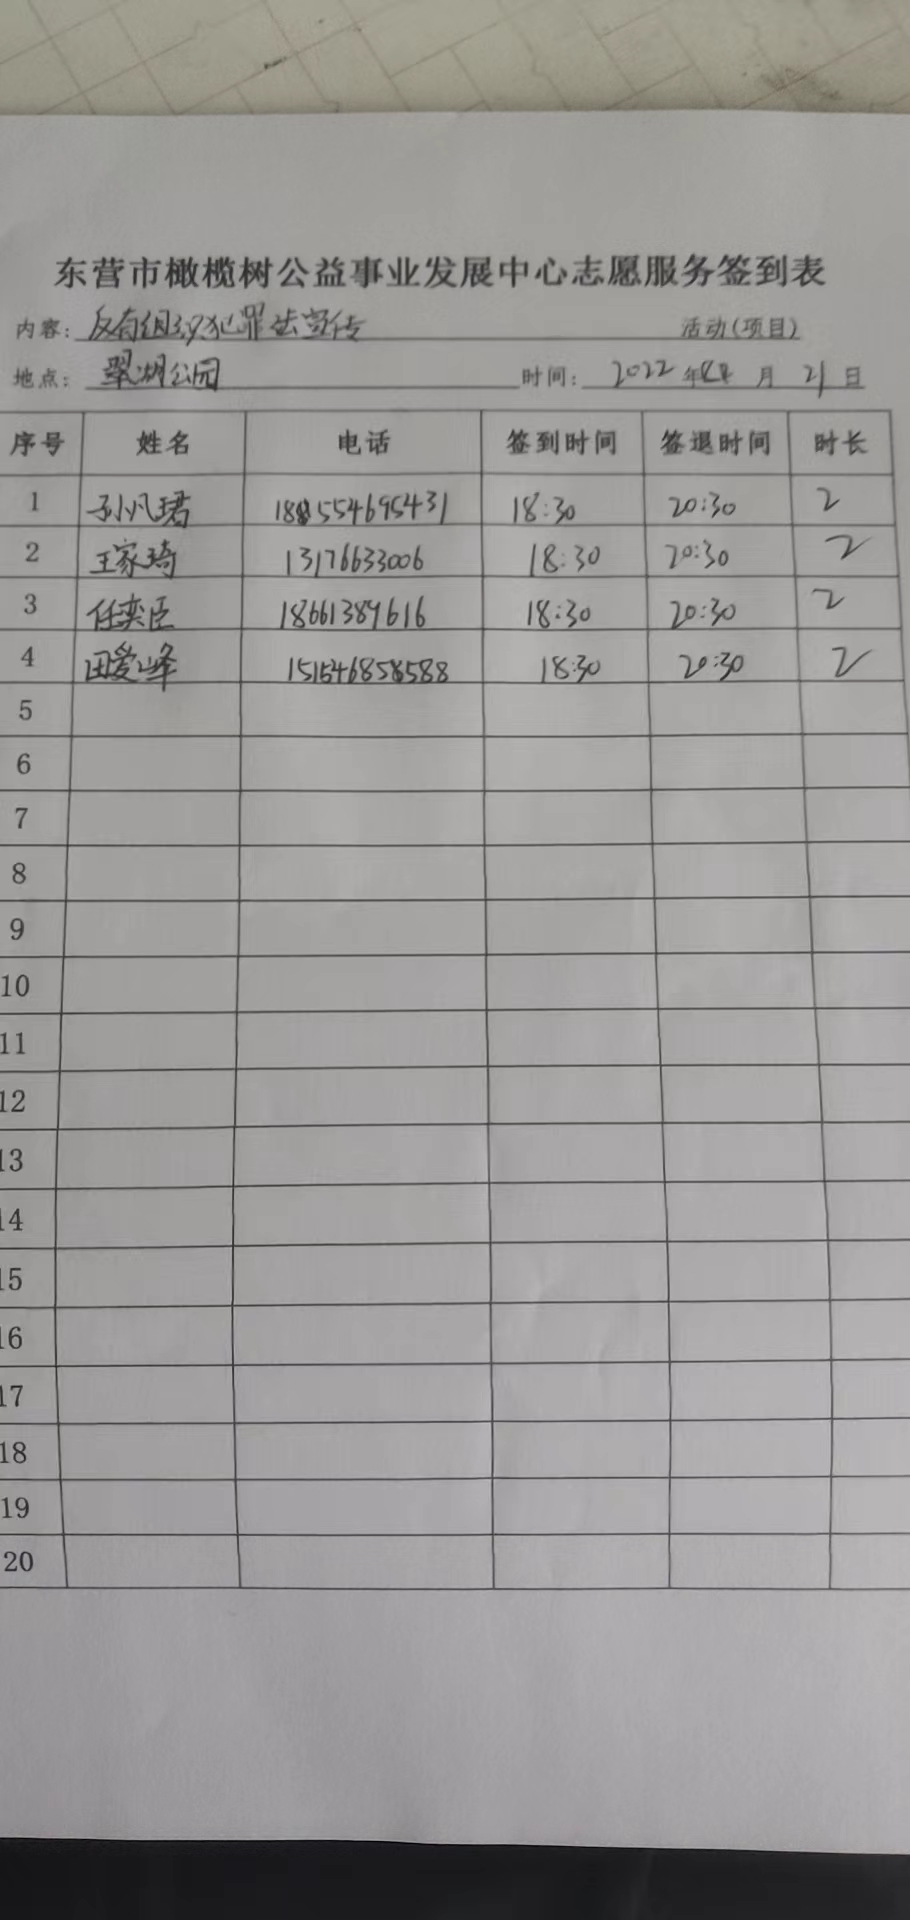 东营市橄榄树公益事业发展中心志愿服务签到表
内容：反有组织犯罪法宣传 活动(项目)
地点：翠湖公园 时间：2022年 月21日
序号 姓名 电话 签到时间 签退时间 时长
1 孙凡珺 18:30 20:30 2
2 王家琦 13176633006 18:30 20:30 2
3 任奕臣 18661389616 18:30 20:30 2
4 田爱峰 18:30 20:30 2
5
6
7
8
9
10
11
12
13
14
15
16
17
18
19
20